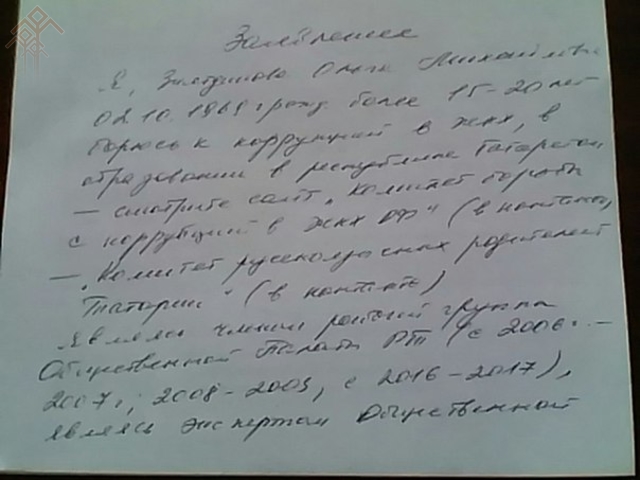 Заявление
Я, Ольга Михайловна
02.10.1969 г рожд. более 15-20 лет
борюсь к коррупцией в ЖКХ, в
образовании в республике Татарстан
— смотрите сайт „Комитет борьбы
с коррупцией в ЖКХ РФ" (в контакте,
— „Комитет русскоязычных родителей
Татарии" (в контакте)
Являюсь членом рабочей группы
Общественной Палаты РТ (с 2006г. —
2007г, 2008-2009, с 2016-2017),
являюсь экспертом Общественной